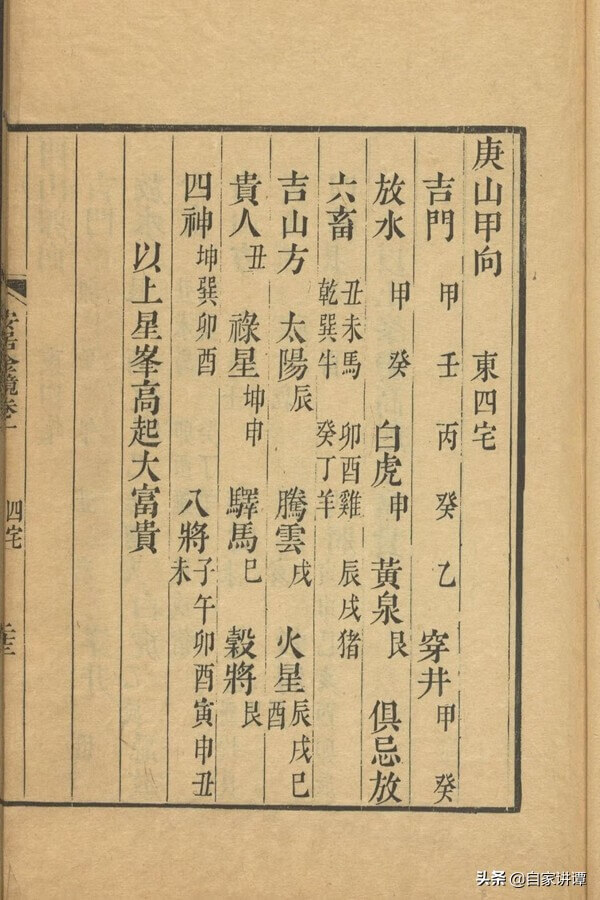 庚山甲向 東四宅
吉門 甲 壬 丙 癸 乙 穿井 甲 癸
放水 甲 癸 白虎 申 黃泉 艮 俱忌放
六畜 丑未馬 乾巽牛 卯酉雞 癸丁羊 辰戌猪
吉山方 太陽 辰 騰雲 戌 火星 辰戌巳酉
貴人 丑 祿星 坤申 驛馬 巳 穀將 艮
四神 坤巽卯酉 八將 子午卯酉寅申丑未
以上星峯高起大富貴
四宅
头条 @自家讲谭